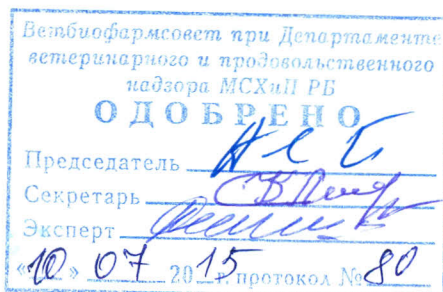 Ветбиофармсовет при Департаменте
ветеринарного и продовольственного
надзора МСХиП РБ
ОДОБРЕНО
Председатель
Секретарь
Эксперт
«10» 07 2015 г. протокол № 80